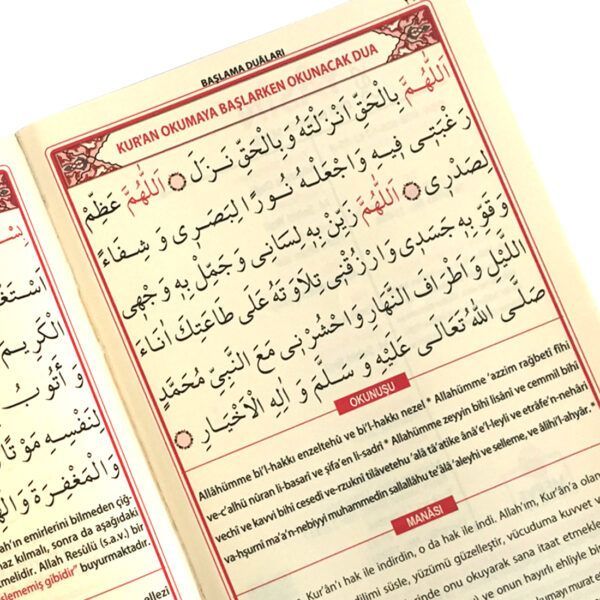 BAŞLAMA DUÂLARI
KUR'AN OKUMAYA BAŞLARKEN OKUNACAK DUA
اَللّٰهُمَّ بِالْحَقِّ اَنْزَلْتَهُ وَبِالْحَقِّ نَزَلَ ۞ اَللّٰهُمَّ عَظِّمْ
رَغْبَتِى فِيهِ وَاجْعَلْهُ نُورًا لِبَصَرِى وَشِفَاءً
لِصَدْرِى ۞ اَللّٰهُمَّ زَيِّنْ بِهِ لِسَانِى وَجَمِّلْ بِهِ وَجْهِى
وَقَوِّ بِهِ جَسَدِى وَارْزُقْنِى تِلَاوَتَهُ عَلَى طَاعَتِكَ اٰنَاءَ
اللَّيْلِ وَاَطْرَافَ النَّهَارِ وَاحْشُرْنِى مَعَ النَّبِىِّ مُحَمَّدٍ
صَلَّى اللّٰهُ تَعَالَى عَلَيْهِ وَسَلَّمَ وَاٰلِهِ الْاَخْيَارِ ۞
OKUNUŞU
Allâhümme bi'l-hakkı enzeltehü ve bi'l-hakkı nezel * Allahümme 'azzim rağbetî fîhi
ve-c'alhü nûran li-basarî ve şifâ'en li-sadrî * Allahümme zeyyin bihî lisânî ve cemmil bihî
vechî ve kavvi bihî cesedî ve-rzuknî tilâvetehu 'alâ tâ'atike ânâ'e'l-leyli ve etrâfe'n-nehâri
va-hşurnî ma'a'n-nebiyyi muhammedin sallallâhu te'âlâ 'aleyhi ve selleme, ve âlihi'l-ahyâr. *
MANÂSI
Kur'ân'ı hak ile indirdin, o da hak ile indi. Allah'ım, Kur'ân'a olan
dilimi süsle, yüzümü güzelleştir, vücuduma kuvvet v
erinde onu okuyarak sana itaat etmekle
ve onun hayırlı ehliyle bir
اَسْتَغْ
الْكَرِيمَ
وَ اَتُوبُ
لِنَفْسِهِ مَوْتًا
وَالْمَغْفِرَةَ وَالْهِ
ah'ın emirlerini bilmeden çığ-
maz kılmalı, sonra da aşağıdaki
melidir. Allah Resûlü (s.a.v.) bir
şlememiş gibidir" buyurmaktadır.